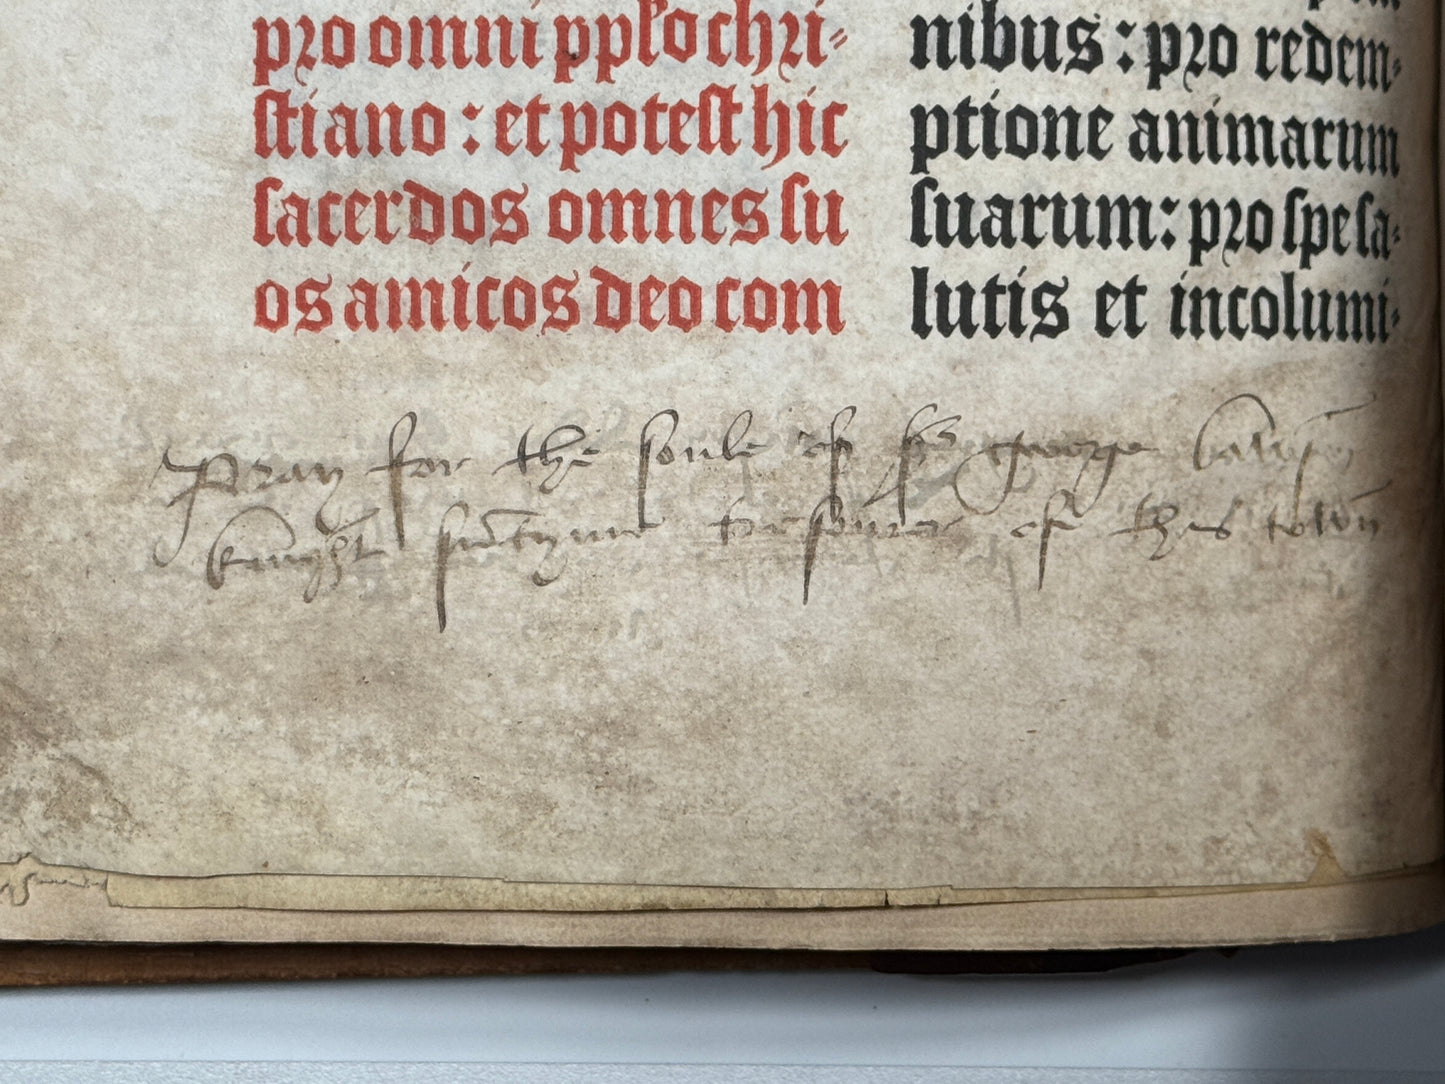 pro omni pplo chri-
stiano : et potest hic
sacerdos omnes su
os amicos deo com
nibus : pro redem-
ptione animarum
suarum : pro spe sa-
lutis et incolumi-
Pray for the soule of sr george
knyght sūtyme tresourer of thes town